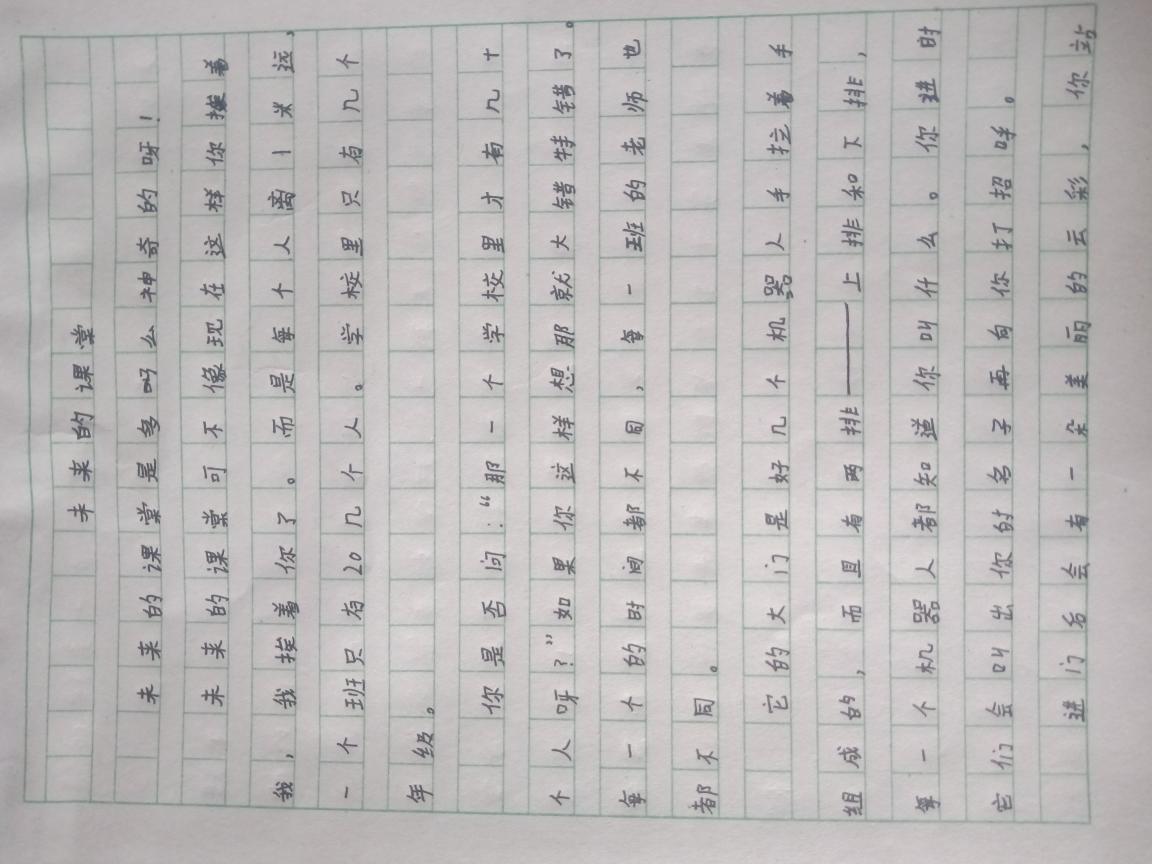 未来的课堂
未来的课堂是多吗么神奇的呀！
未来的课堂可不像现在这样你挨着
我，我挨着你了。而是每个人离1米远，
一个班只有20几个人。学校里只有几个
年级。
你是否问：“那一个学校里才有几十
个人呀？”如果你这样想那就大错特错了。
每一个的时间都不同，每一班的老师也
都不同。
它的大门是好几个机器人手拉着手
组成的，而且有两排——上排和下排，
每一个机器人都知道你叫什么。你进时
它们会叫出你的名子再向你打招呼。
进门后会有一朵美丽的云彩，你站